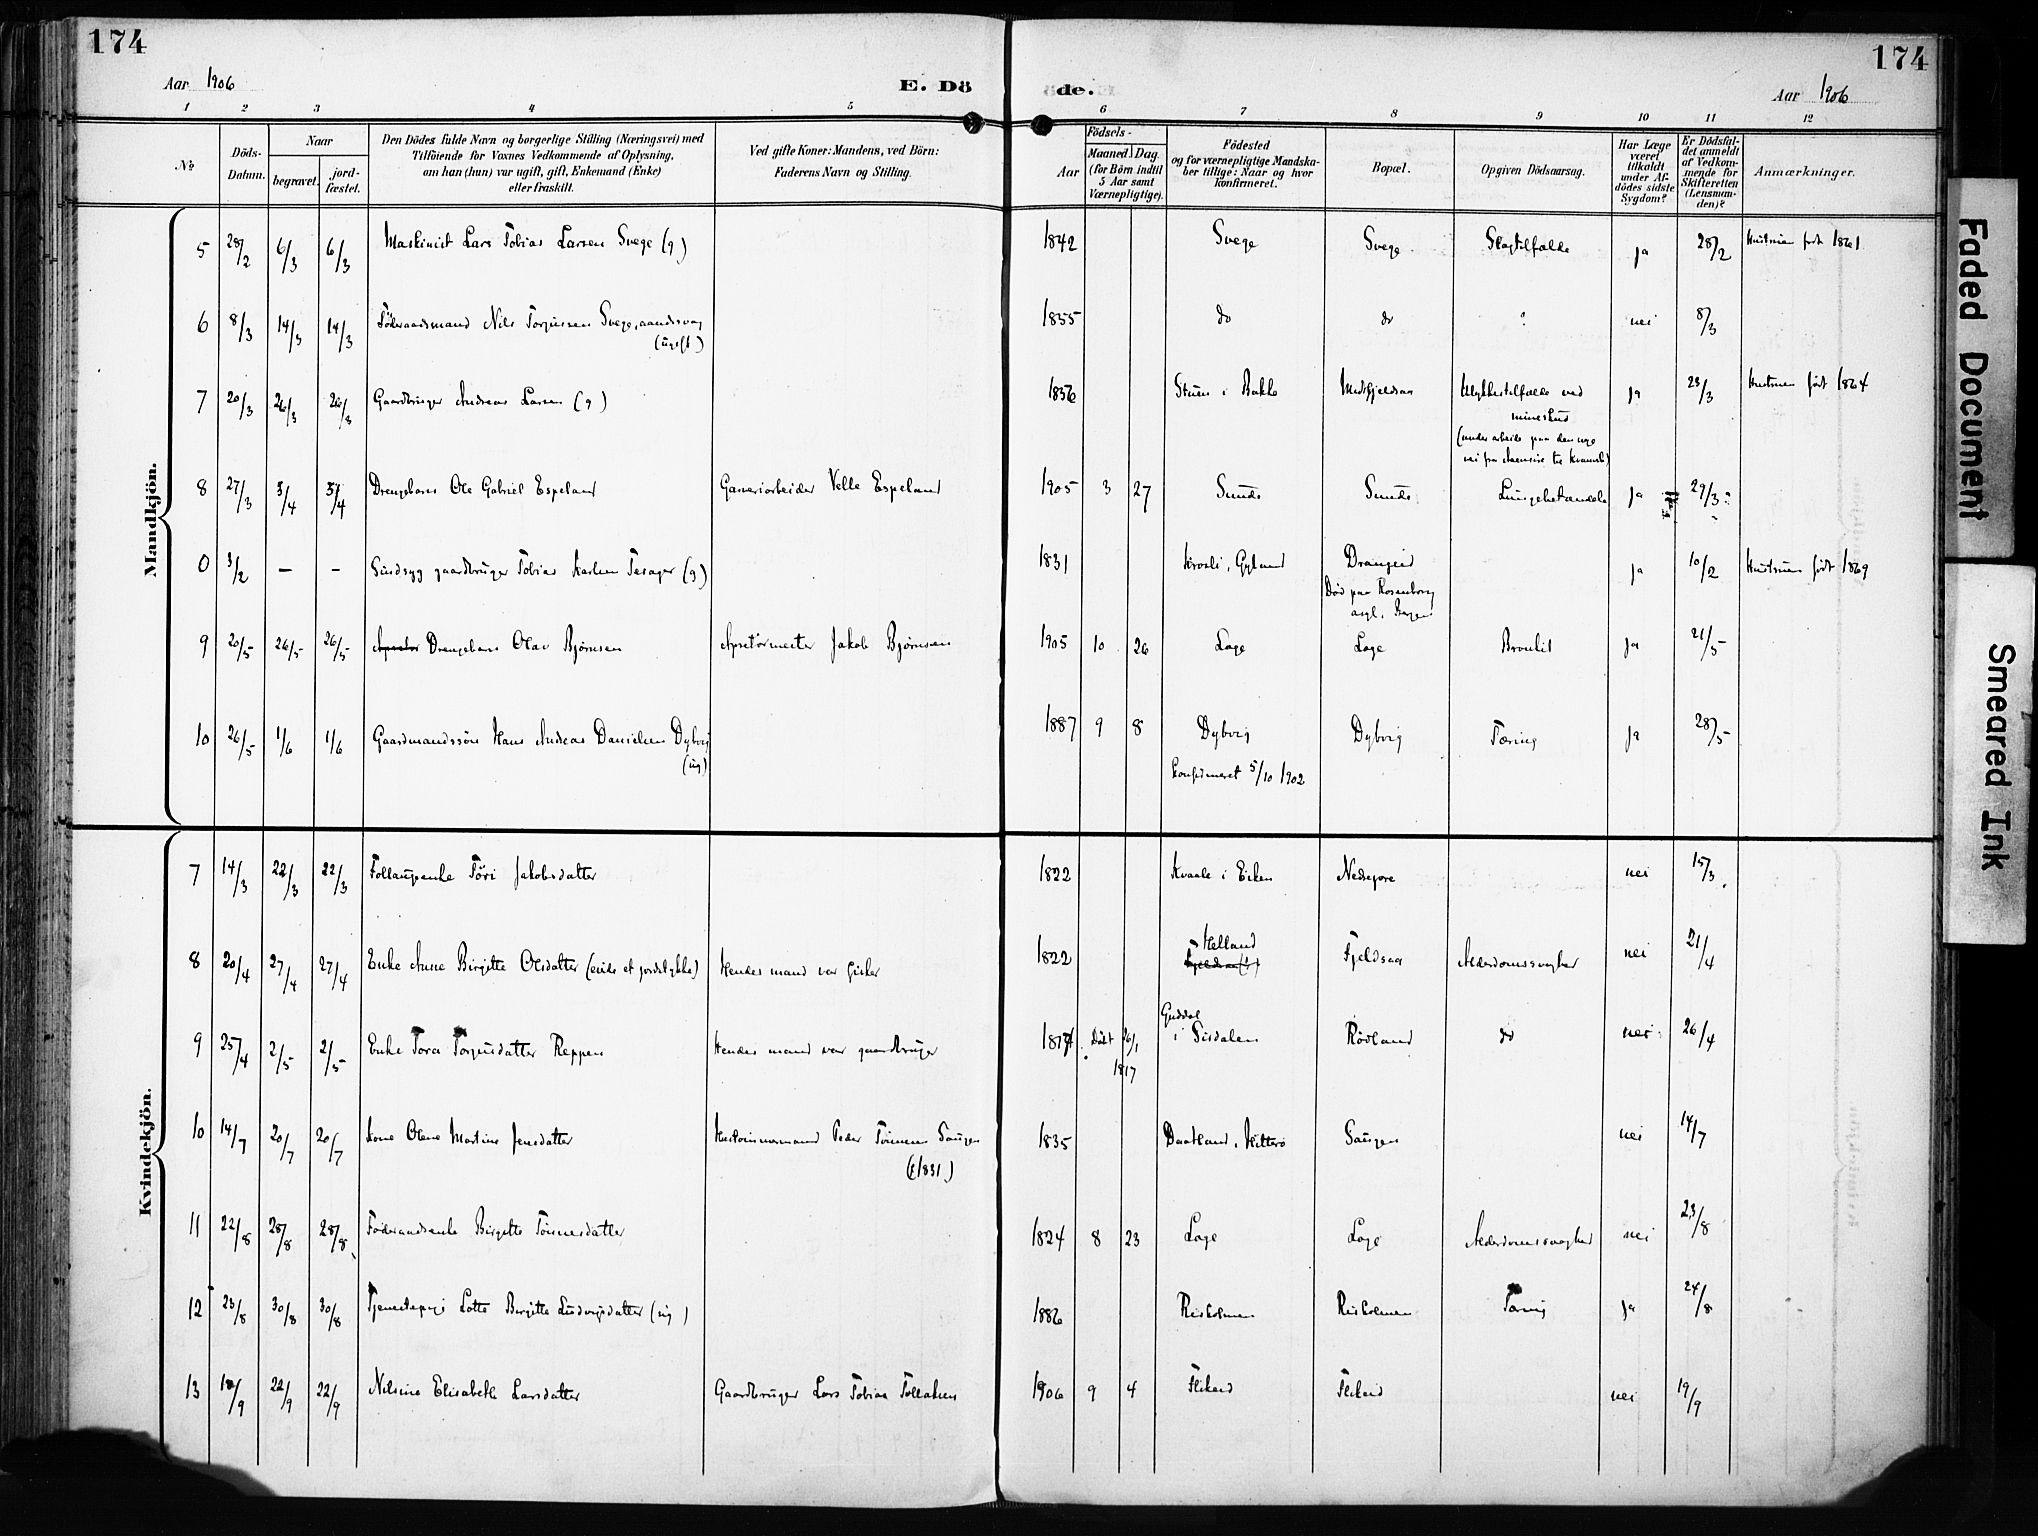 174
Aar 1906
E. Dö
de.
Aar 1906
174
1 2 3 4 5 6 7 8 9 10 11 12
No
Döds-Datum.
Naar
begravet.
jord-fæstet.
Den Dödes fulde Navn og borgerlige Stilling (Næringsvei) med
Tilföiende for Voxnes Vedkommende af Oplysning,
om han (hun) var ugift, gift, Enkemand (Enke)
eller fraskilt.
Ved gifte Koner: Mandens, ved Börn:
Faderens Navn og Stilling.
Födsels-
Aar
Maaned Dag
(for Börn indtil
5 Aar samt
Værnepligtige).
Födested
og for værnepligtige Mandska-
ber tillige: Naar og hvor
konfirmeret.
Bopæl.
Opgiven Dödsaarsag.
Har Læge
været
tilkaldt
under Af-
dödes sidste
Sygdom?
Er Dödsfal-
det anmeldt
af Vedkom-
mende for
Skifteretten
(Lensman-
den)?
Anmærkninger.
Mandkjön.
5 28/2 6/3 6/3 Maskinist Lars Tobias Larsen Svege (g) 1842 Svege Svege Slagtilfælde ja 28/2 Hustruen født 1861
6 8/3 14/3 14/3 Föderaadsmand Nils Torjussen Svege, aandssvag 1855 do do ? nei 8/3
(ugift)
7 20/3 26/3 26/3 Gaardbruger Andreas Larsen (g) 1856 Stuen i Bakke Midtfjeldsaa Ulykkestilfælde ved ja 23/3 Hustruen født 1864
mineskud
(under arbeide paa den nye
8 27/3 3/4 3/4 Drengebarn Ole Gabriel Espeland Garveriarbeider Velle Espeland 1905 3 27 Sunde Sunde Lungebetændelse ja 29/3
0 3/2 — - Sindssyg gaardbruger Tobias Karlsen Tesager (g) 1831 Kvosli, Gyland Drangeid ja 10/2 Hustruen født 1869
Död paa Rosenberg
asyl, Bergen
9 20/5 26/5 26/5 Drengebarn Olav Bjørnsen Apretørmester Jakob Bjørnsen 1905 10 26 Loge Loge Bronkit ja 21/5
10 26/5 1/6 1/6 Gaardmandssön Hans Andreas Danielsen Dybvig 1887 9 8 Dybvig Dybvig Tæring ja 28/5
(ug) Konfirmeret 5/10 1902
Kvindekjön.
7 14/3 22/3 22/3 Föri Jakobsdatter 1822 Kvaale i Eiken Nedrepore nei 15/3
8 20/4 27/4 27/4 Enke Anne Birgitte Olsdatter (eiede et jordstykke) Hendes mand var fisker 1822 Helland Fjeldsaa Alderdomssvaghet nei 21/4
9 25/4 2/5 2/5 Enke Tora Torjusdatter Reppen Hendes mand var gaardbruger 1817 Döbt 26/1 1817 i Sirdalen Rödland do nei 26/4
10 14/7 20/7 20/7 Kone Olene Martine Jensdatter Hustömmermand Peder Tönnesen Saugen 1835 Daatland, Hitterö Saugen nei 14/7
(f 1831)
11 22/8 28/8 28/8 Föderaadsenke Birgitte Tönnesdatter 1824 8 23 Loge Loge Alderdomssvaghet nei 23/8
12 23/8 30/8 30/8 Tjenestepige Lotte Birgitte Ludvigsdatter (ug) 1886 Reisholmen Reisholmen Tæring ja 24/8
13 18/9 22/9 22/9 Nilsine Elisabeth Larsdatter Gaardbruger Lars Tobias Tollaksen 1906 9 4 Flikeid Flikeid nei 19/9
Faded Document
Smeared Ink